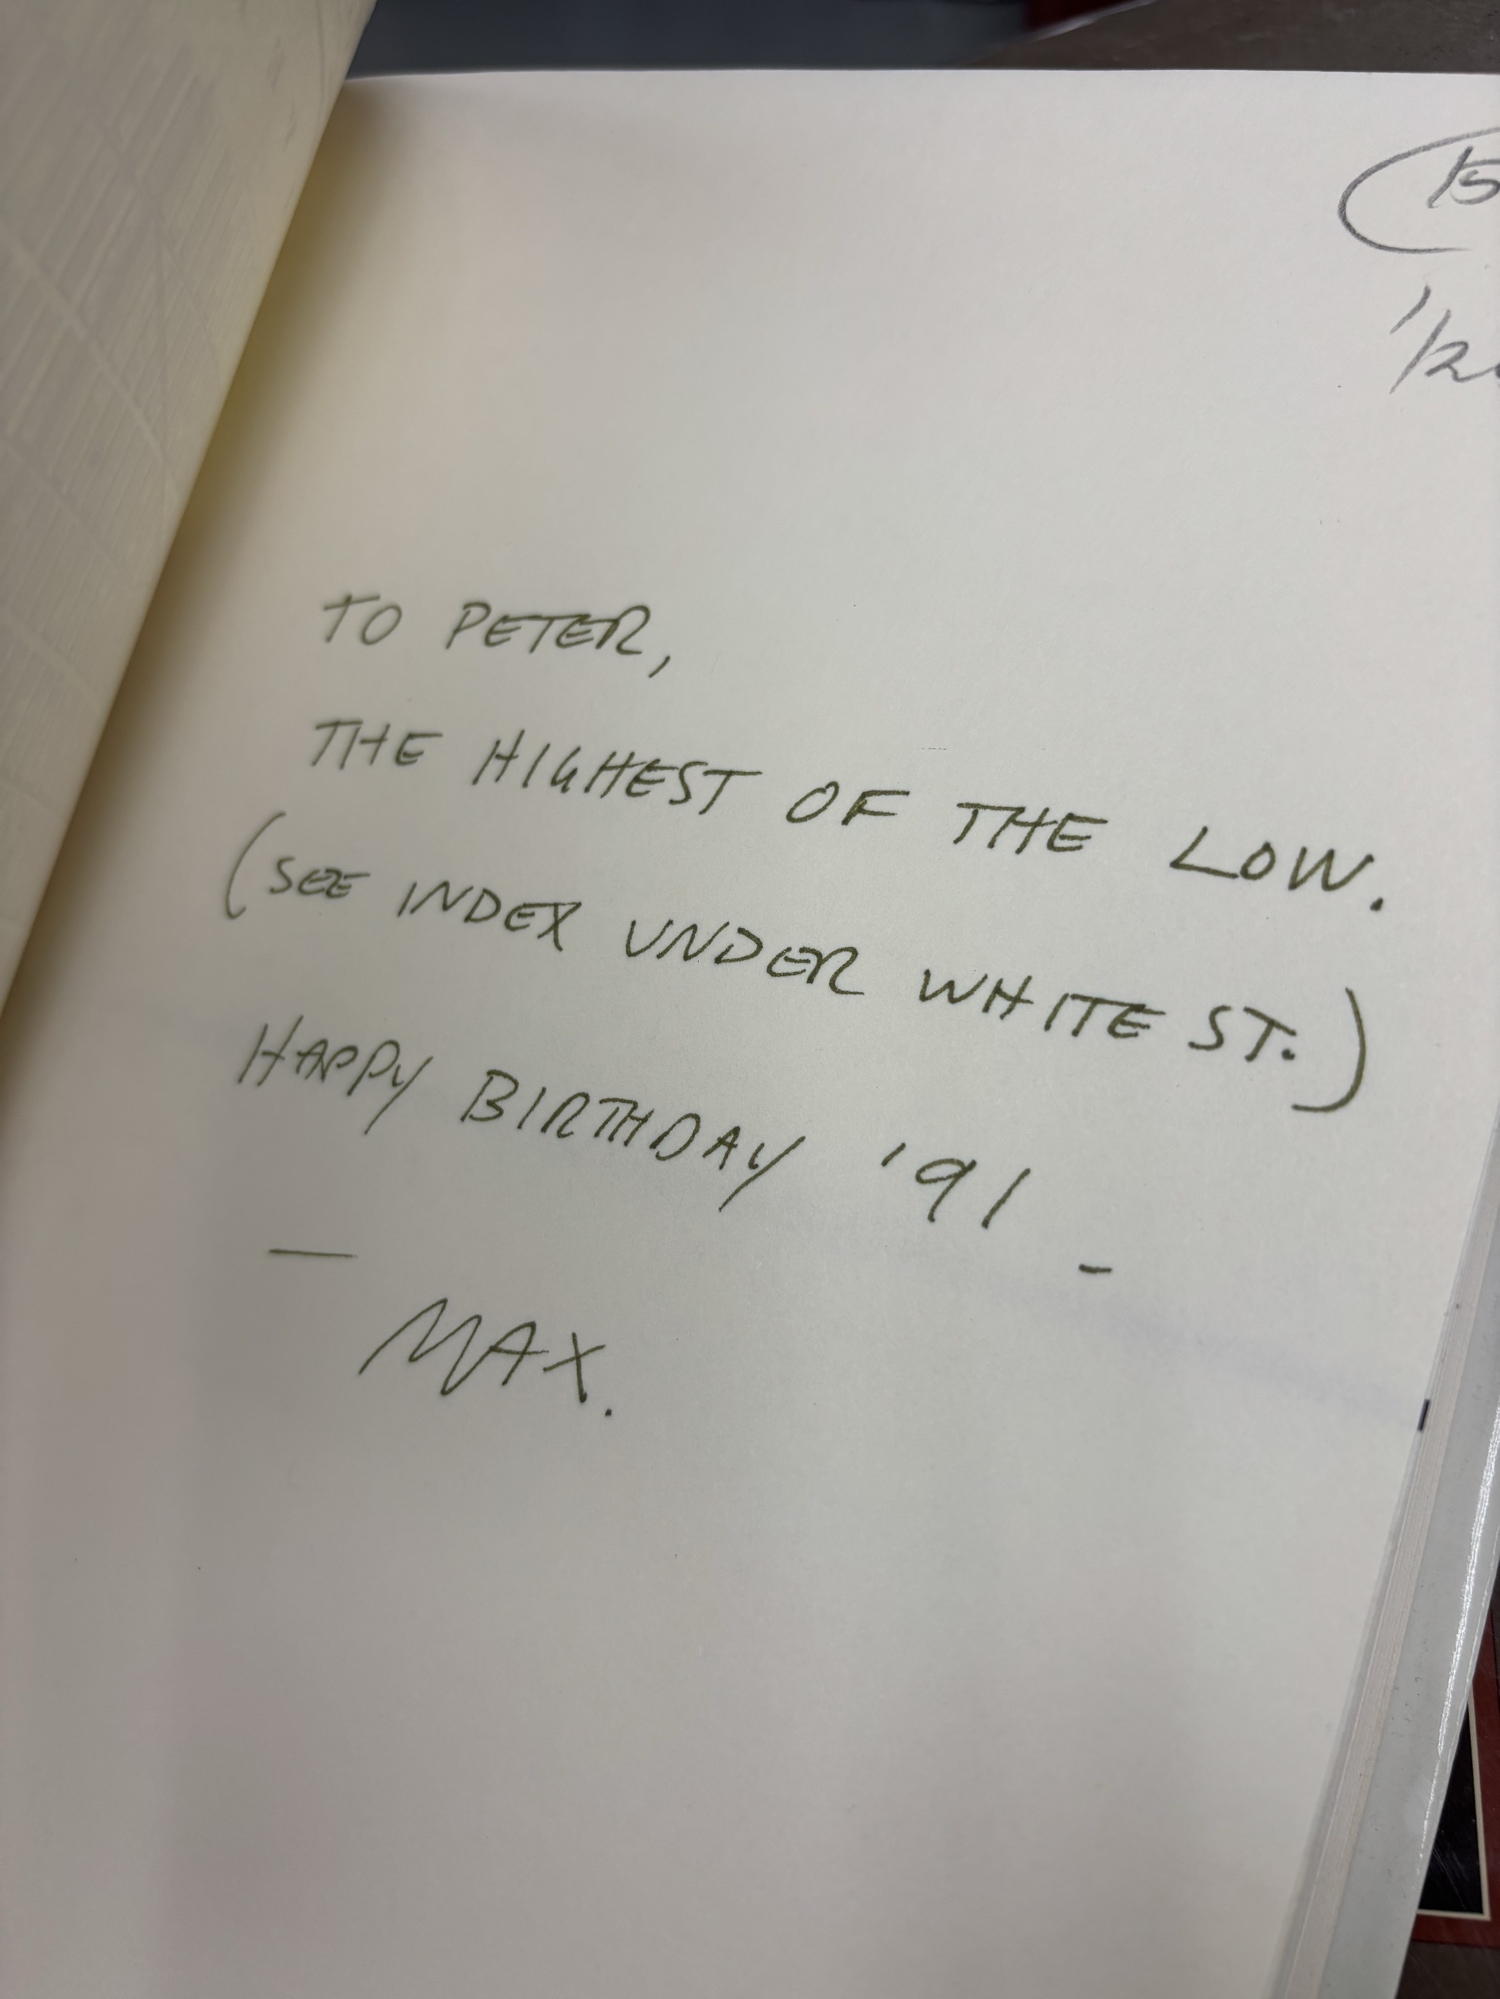 15
1/2
TO PETER,
THE HIGHEST OF THE LOW.
(SEE INDEX UNDER WHITE ST.)
HAPPY BIRTHDAY '91 -
— MAX.